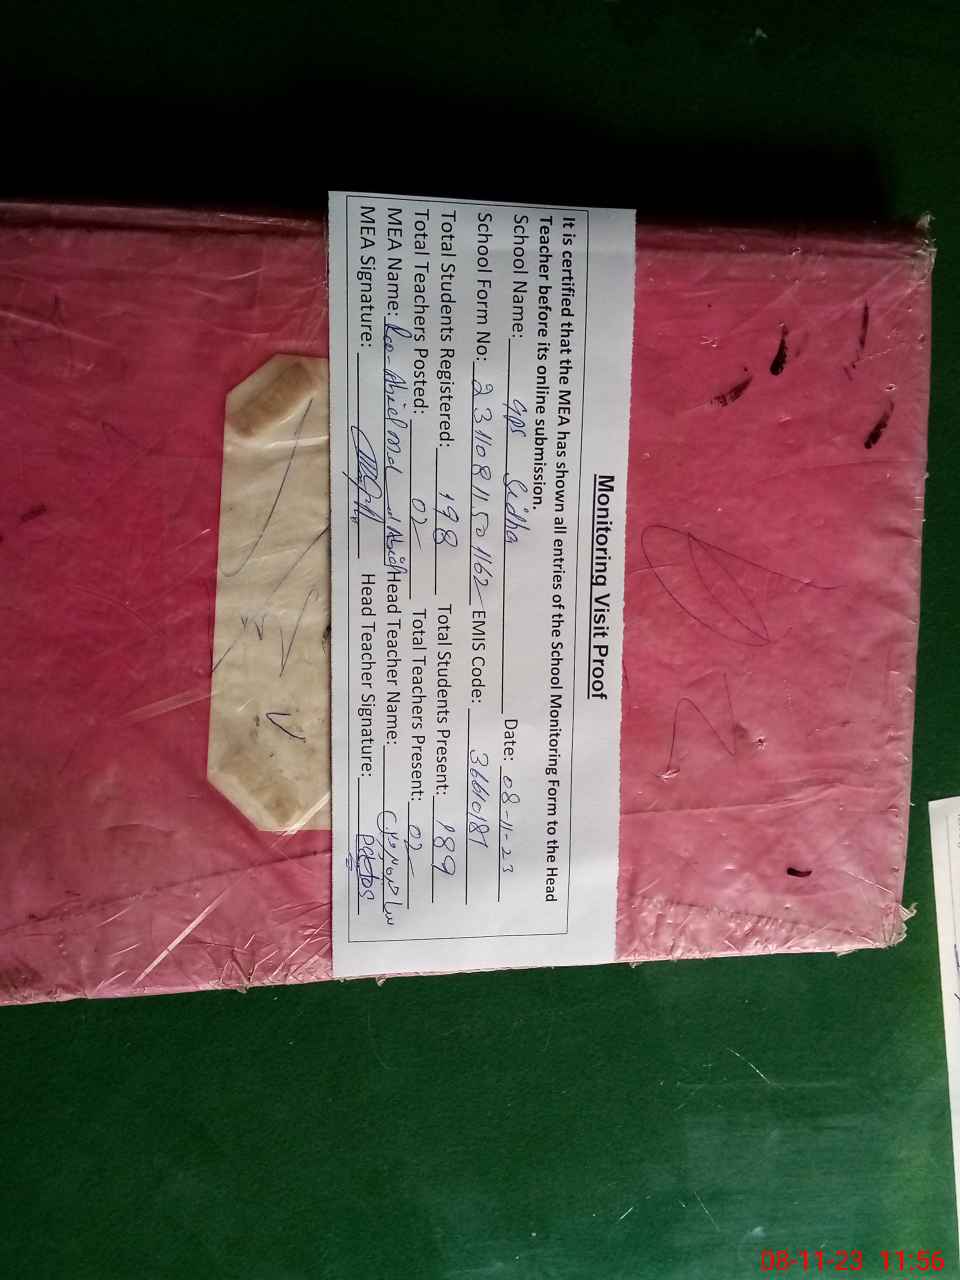 Monitoring Visit Proof
It is certified that the MEA has shown all entries of the School Monitoring Form to the Head
Teacher before its online submission.
School Name: GPS Sidha Date: 08-11-23
School Form No: 23110811501162 EMIS Code: 36610187
Total Students Registered: 198 Total Students Present: 189
Total Teachers Posted: 02 Total Teachers Present: 02
MEA Name: Rao Abid Md Head Teacher Name:
MEA Signature: Head Teacher Signature:
08-11-23 11:56